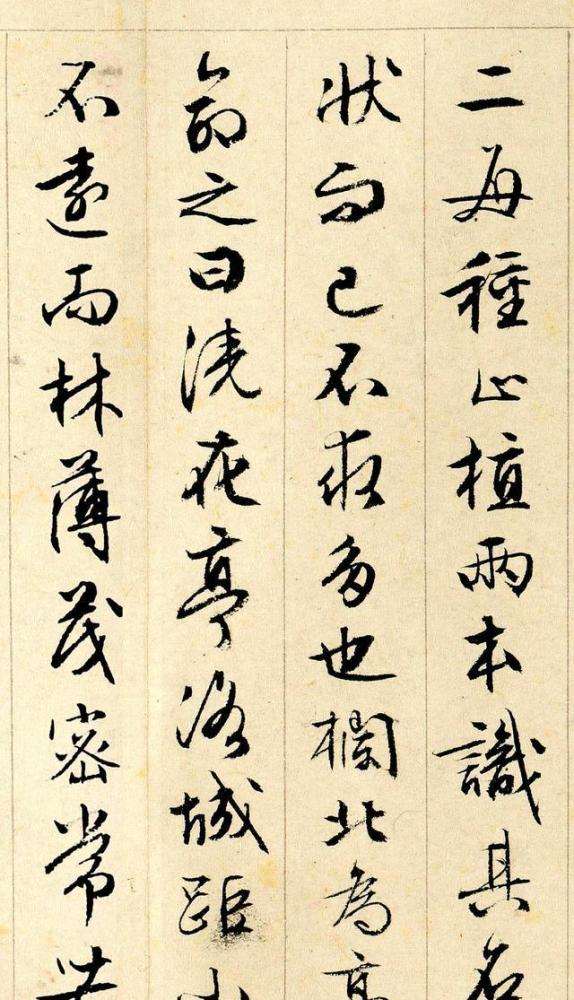 二每種止植兩本識其名
狀而已不求多也欄北為亭
命之曰澆花亭洛城距山
不遠而林薄茂密常若